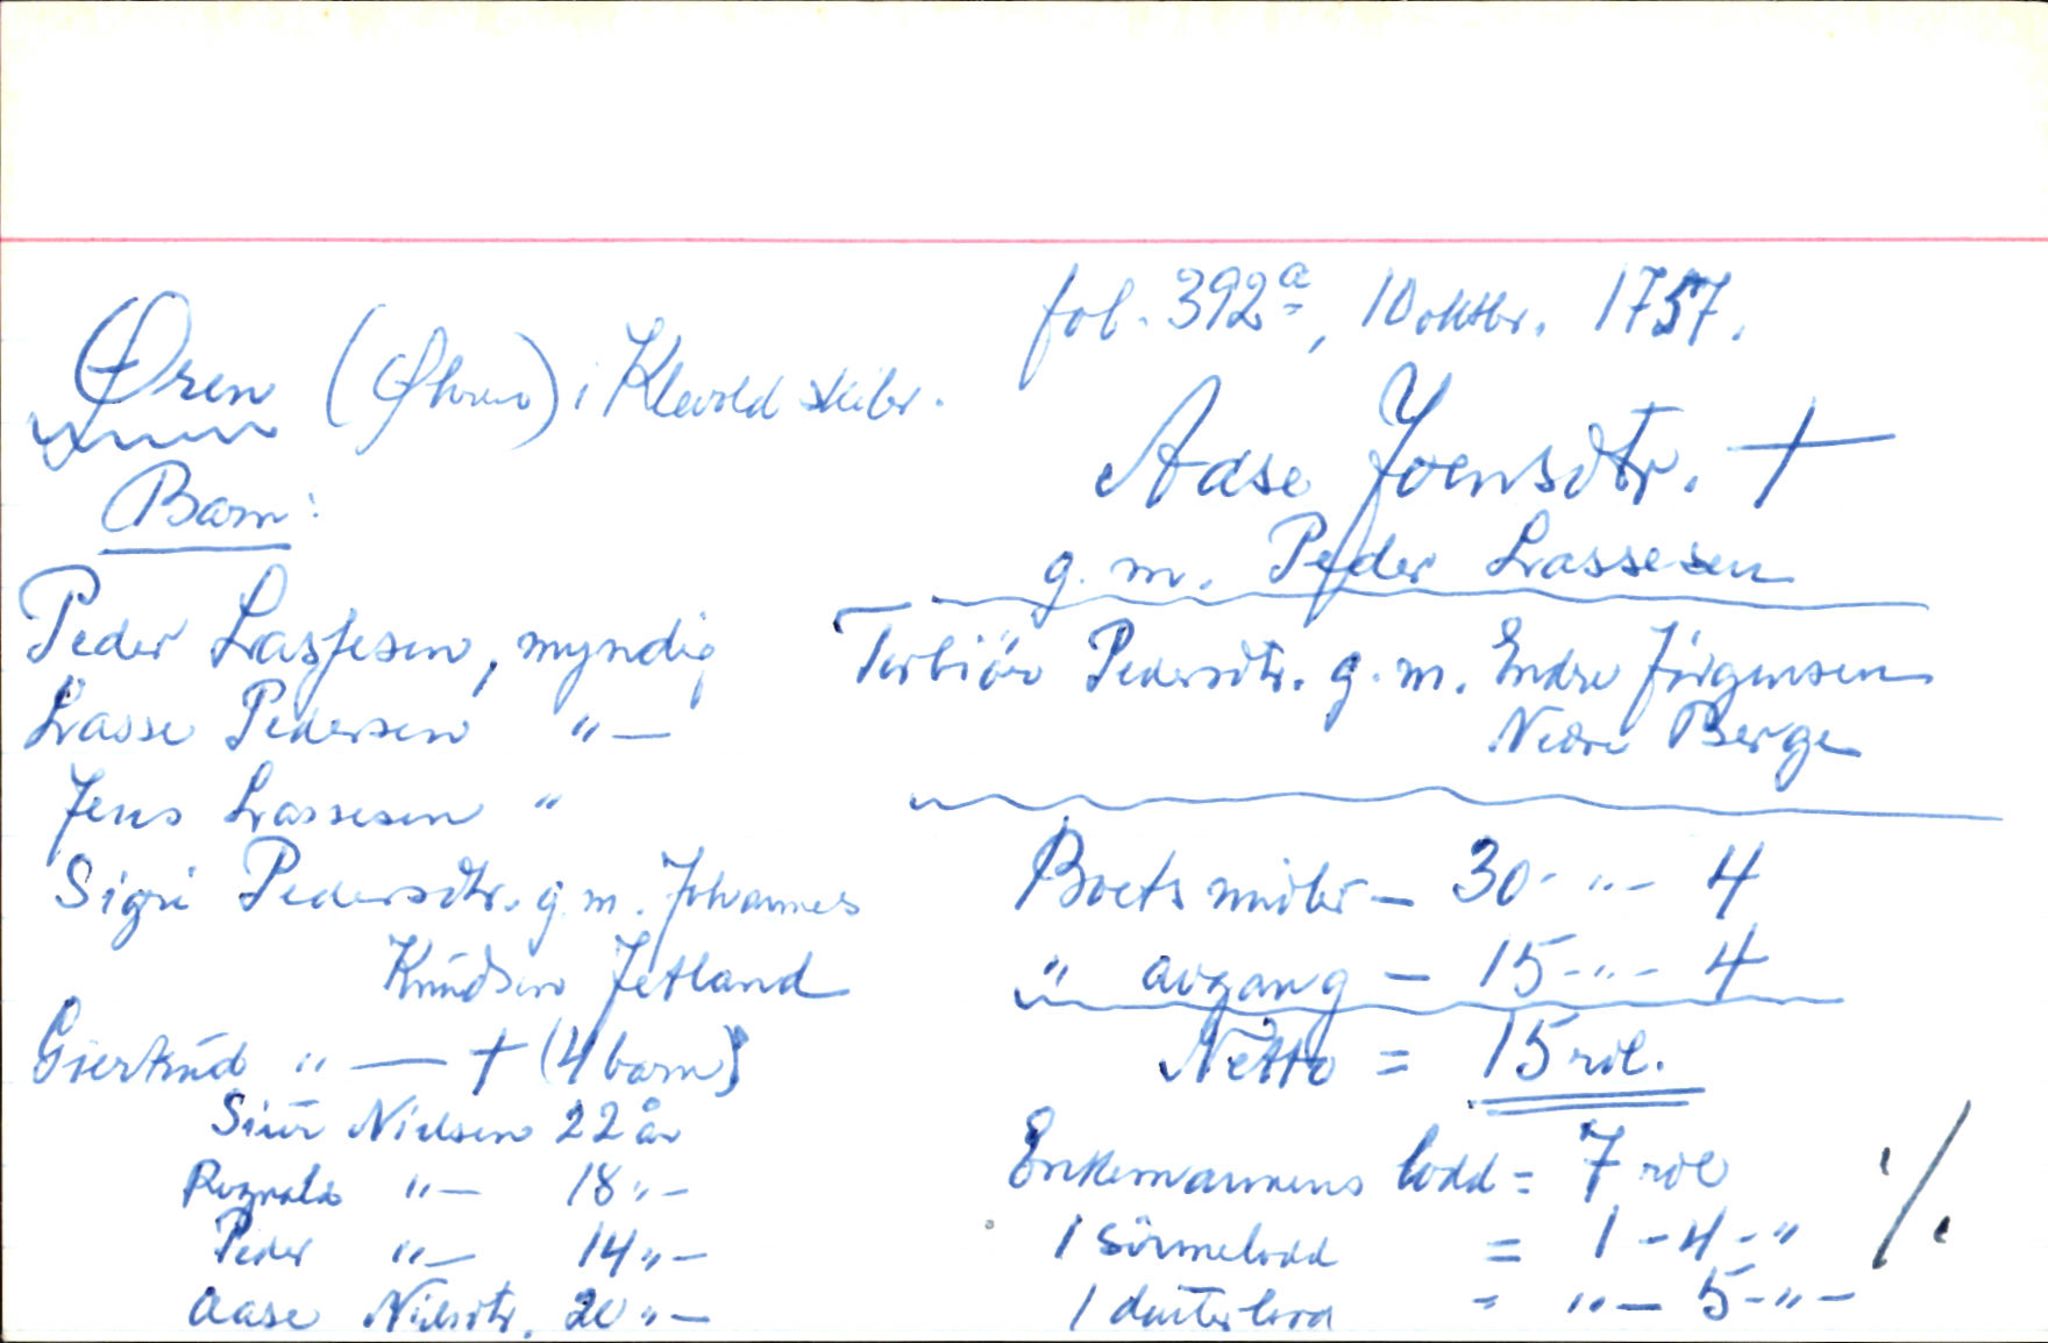 fol. 392a, 10 oktbr. 1757.
Øren (Øhren) i Klevold skibr.
Aase Joensdtr. †
g. m. Peder Lassesen
Barn:
Peder Lassesen, myndig
Lasse Pedersen "—
Jens Lassesen "
Sigri Pedersdtr. g. m. Johannes
Knudsen Jetland
Giertrud "— † (4 barn)
Siur Nielsen 22 år
Rognald "— 18 "—
Peder "— 14 "—
Aase Nielsdtr. 20 "—
Torbiör Pedersdtr. g. m. Endre Jörgensen
Nedre Berge
Boets midler — 30 - " - 4
" avgang — 15 - " - 4
Netto = 15 rdl.
Enkemannens lodd = 7 rdl
1 sönnelodd = 1 - 4 - "
1 dutterlodd = " — 5 - " —
·/.